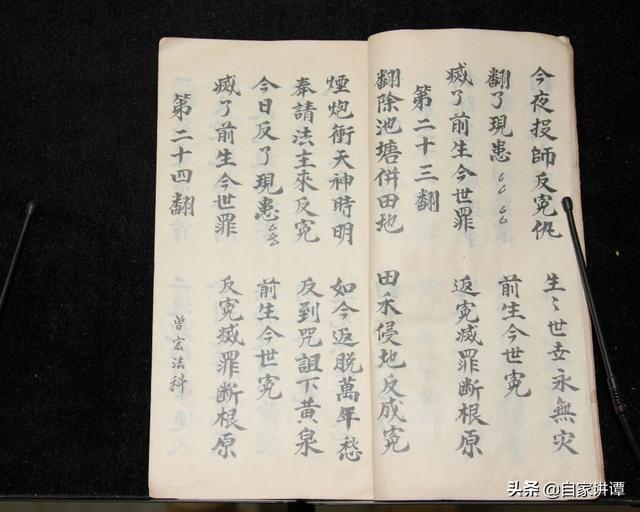 今夜投師反冤仇　生〻世世永無灾
翻了現患〻〻〻〻　前生今世冤
滅了前生今世罪　返冤滅罪断根原
第二十三翻
翻除池塘併田地　田禾侵地反成冤
煙炮衝天神時明　如今返脱萬年愁
奉請法主來反冤　反到咒詛下黄泉
今日反了現患〻〻〻　前生今世冤
滅了前生今世罪　反冤滅罪断根原
第二十四翻
曾宏法科
头条 @自家讲谭